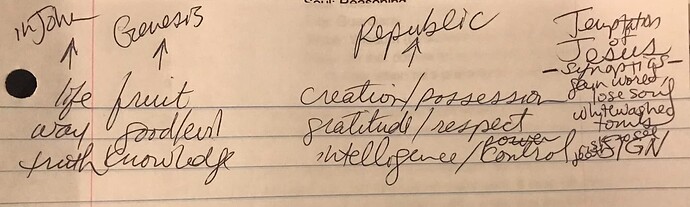 in John Genesis Republic Temptation
of
Jesus
- synoptics -
life fruit creation/possession gain world/
lose soul
way good/evil gratitude/respect whitewashed
tombs
truth knowledge intelligence/control SIGN
power